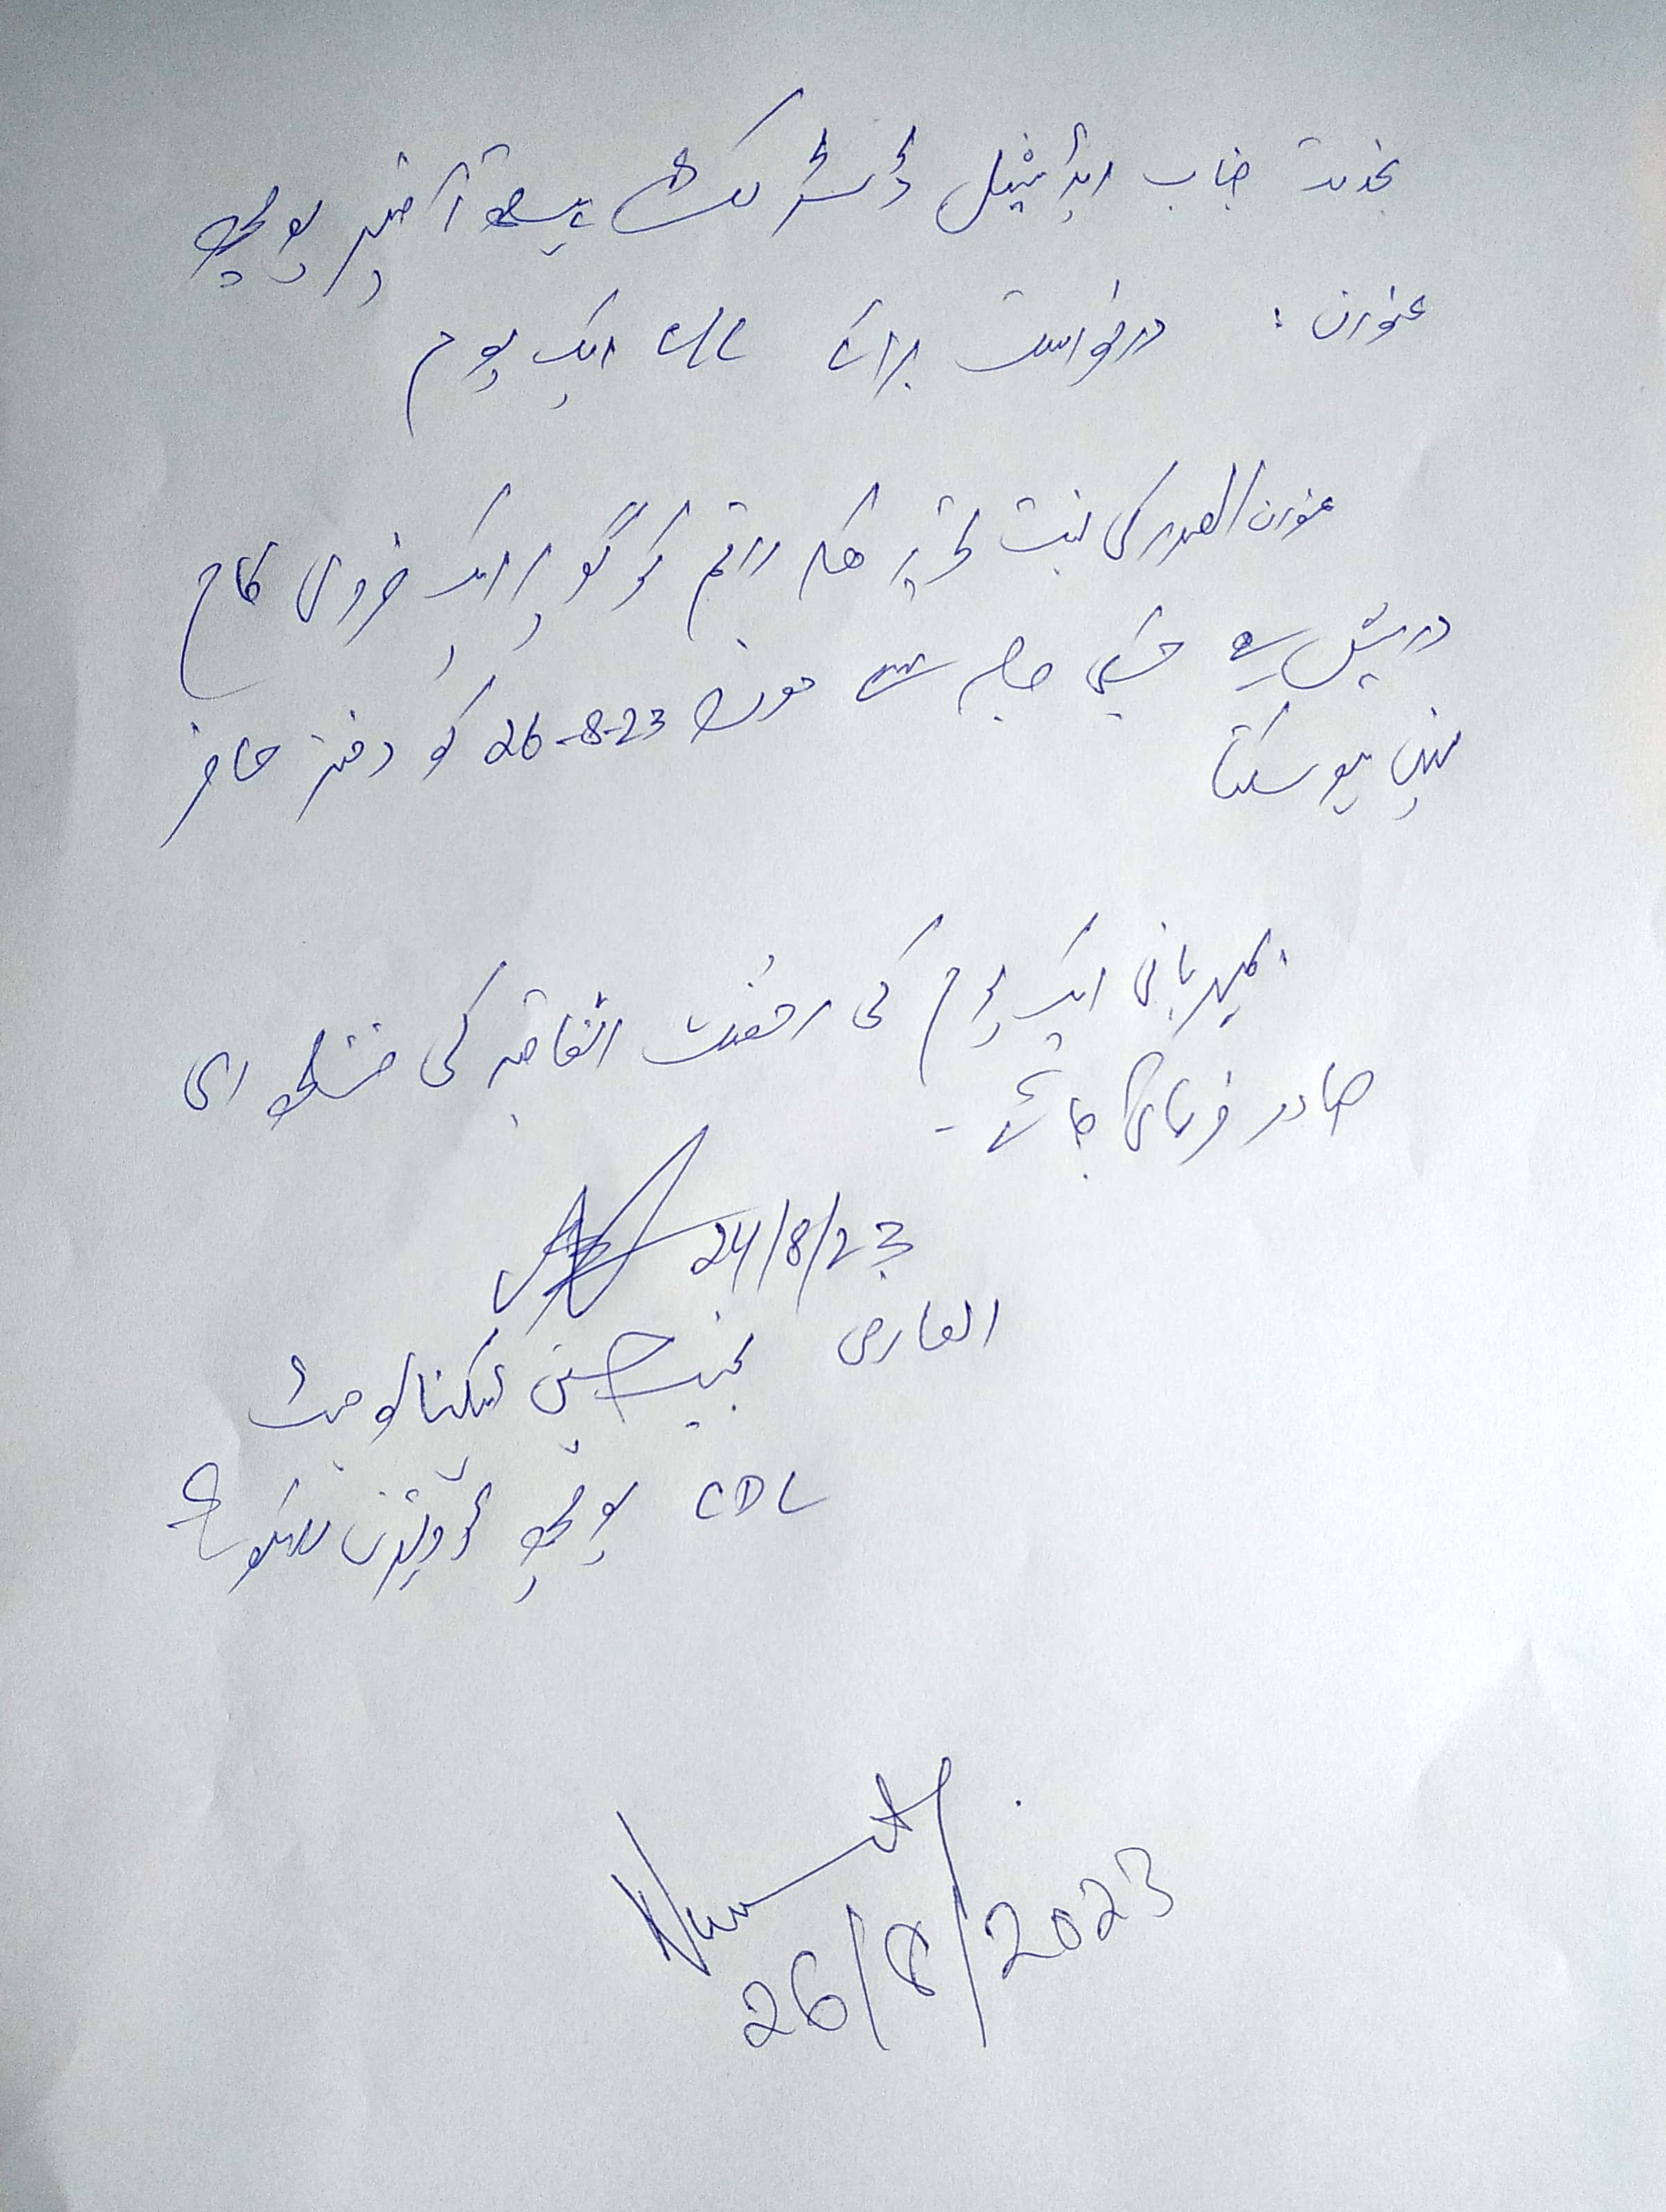 بخدمت جناب ایڈیشنل ڈسٹرکٹ ہیلتھ آفیسر پونچھ
عنوان : درخواست برائے C/L ایک یوم
عنوان الصدر کی نسبت تحریر ھیکہ راقم کو گھر ایک ضروری کام
درپیش ہے جسکی وجہ سے مورخہ 26-8-23 کو دفتر حاضر
نہیں ہو سکتا
بمہربانی ایک یوم کی رخصت اتفاقیہ کی منظوری
صادر فرمائی جائے۔
24/8/23
العارض حسین ٹیکنالوجسٹ
CDL پونچھ ڈویژن راولاکوٹ
26/8/2023